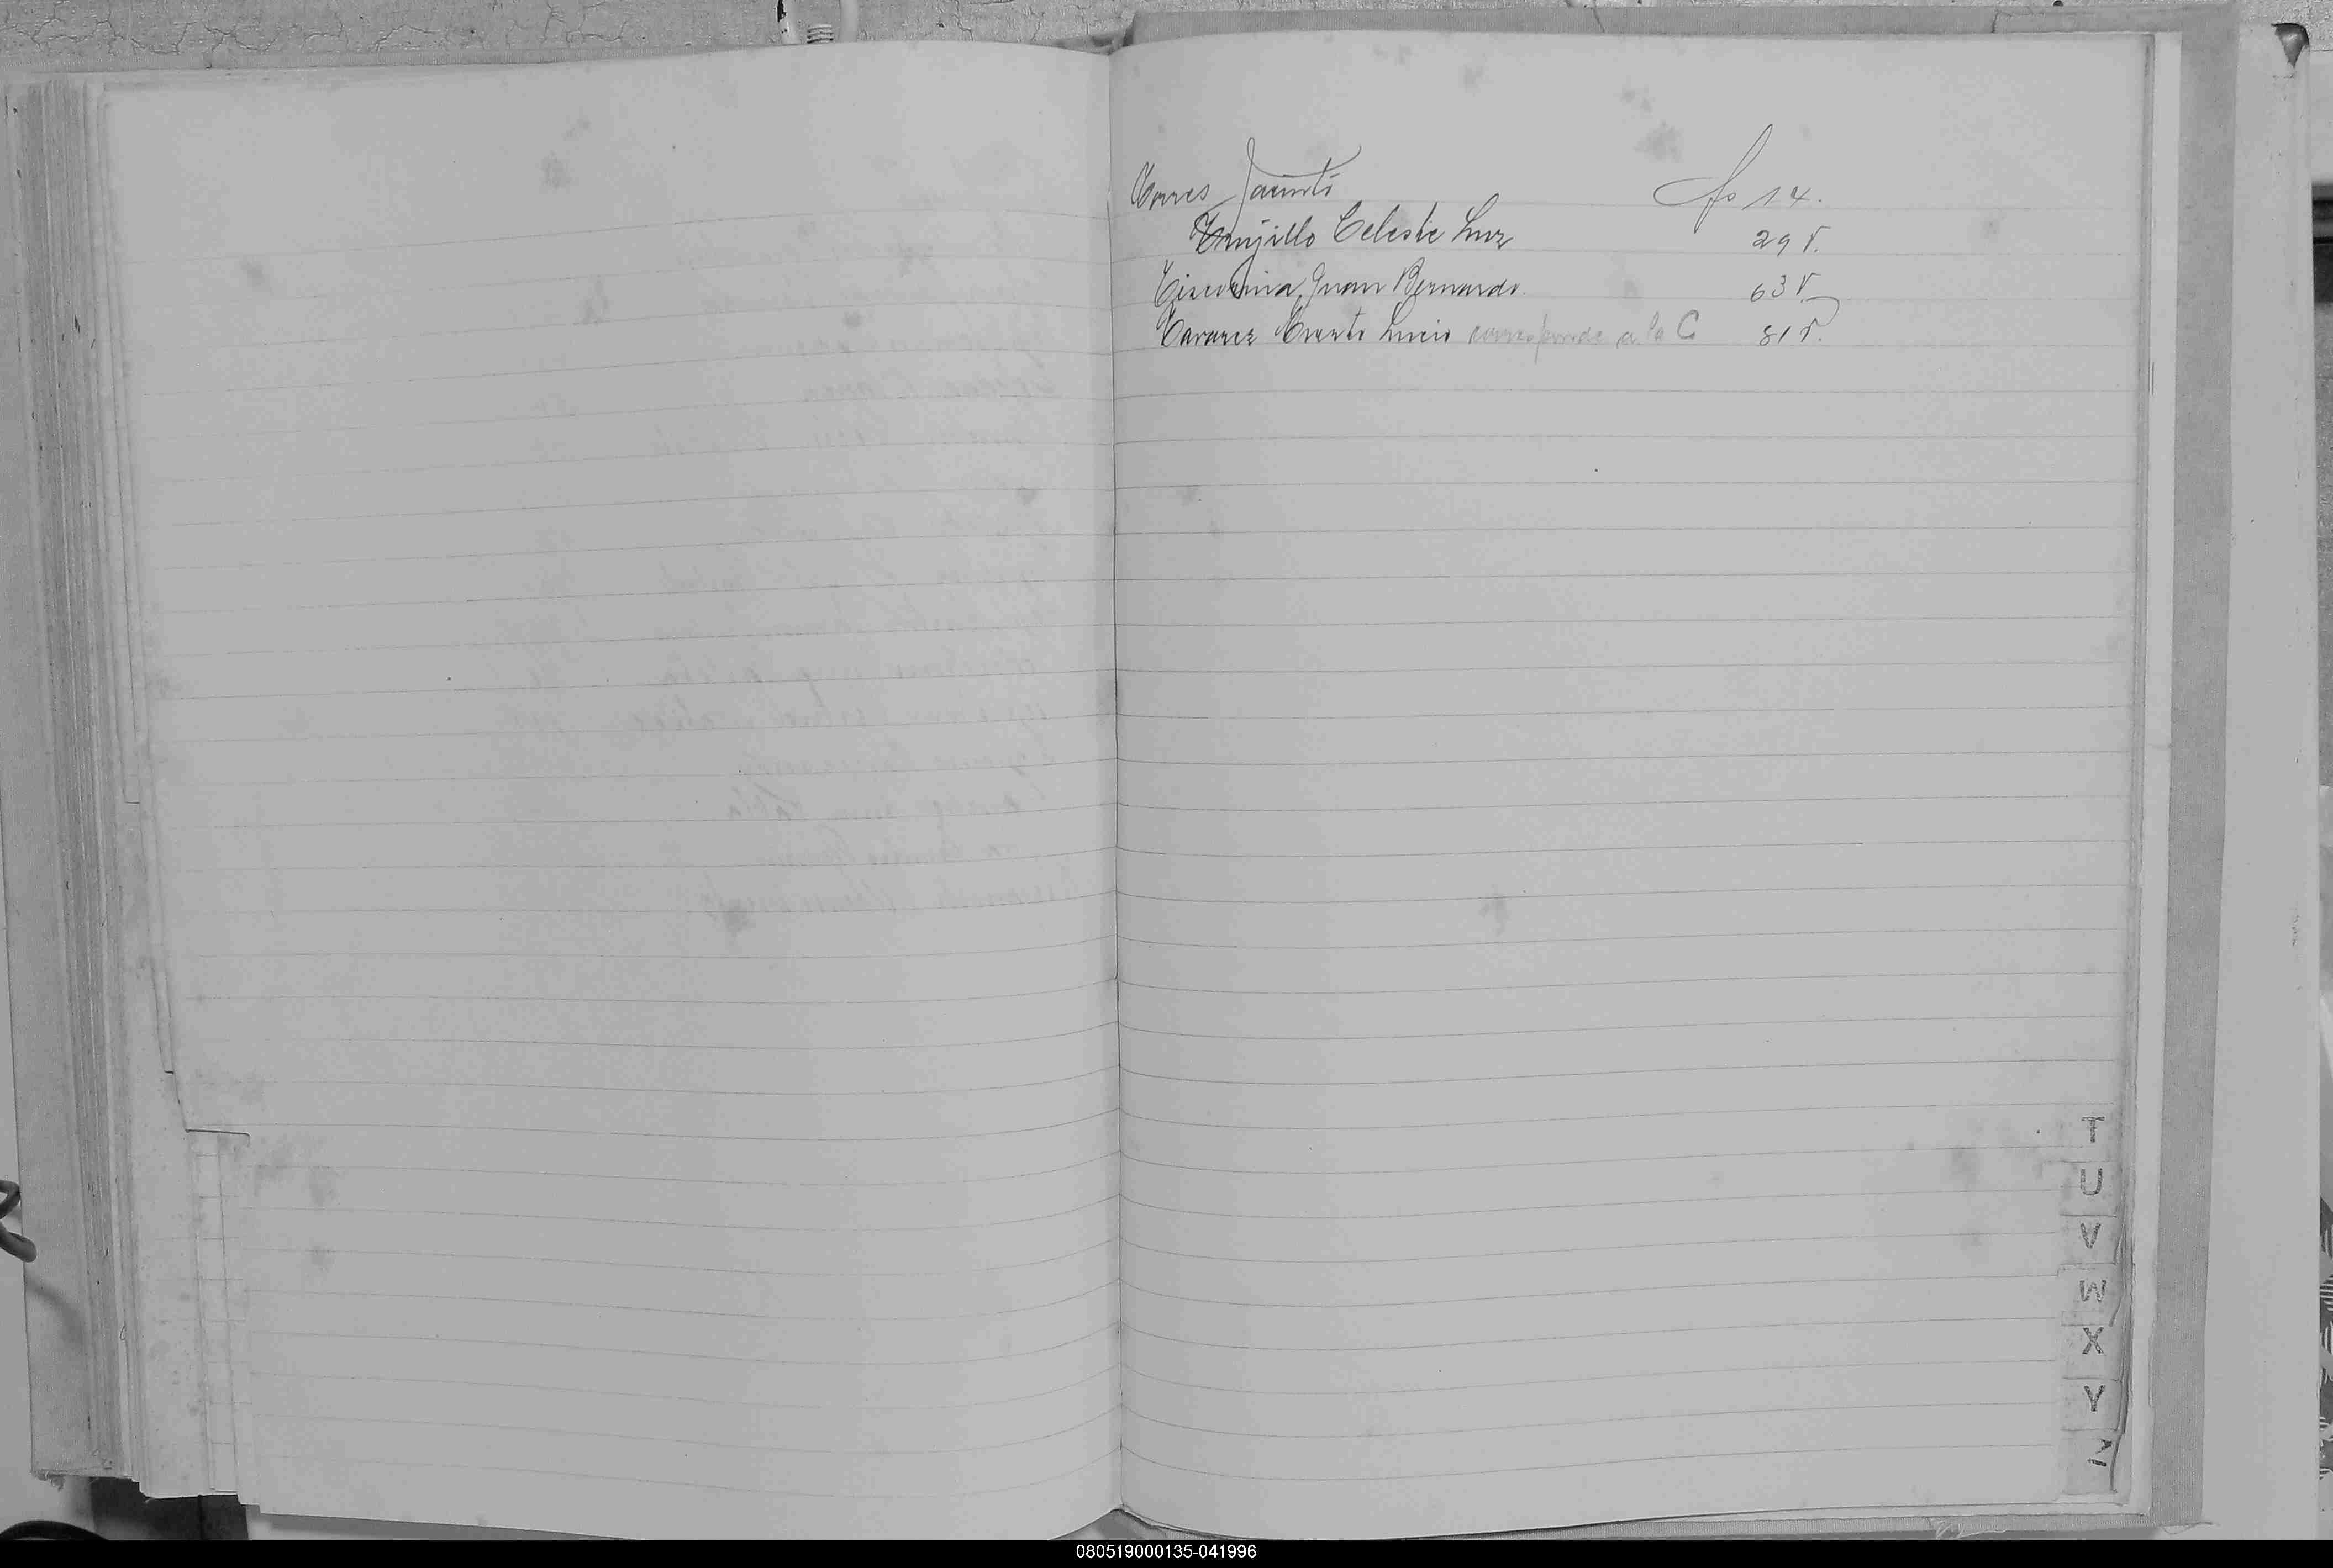 Torres Jacinto fs 14.
Trujillo Celeste Luz 29 v.
Tiscornia, Juan Bernardo 63 v.
Tavarez Lucio corresponde a la C 81 v.
T
U
V
W
X
Y
Z
080519000135-041996